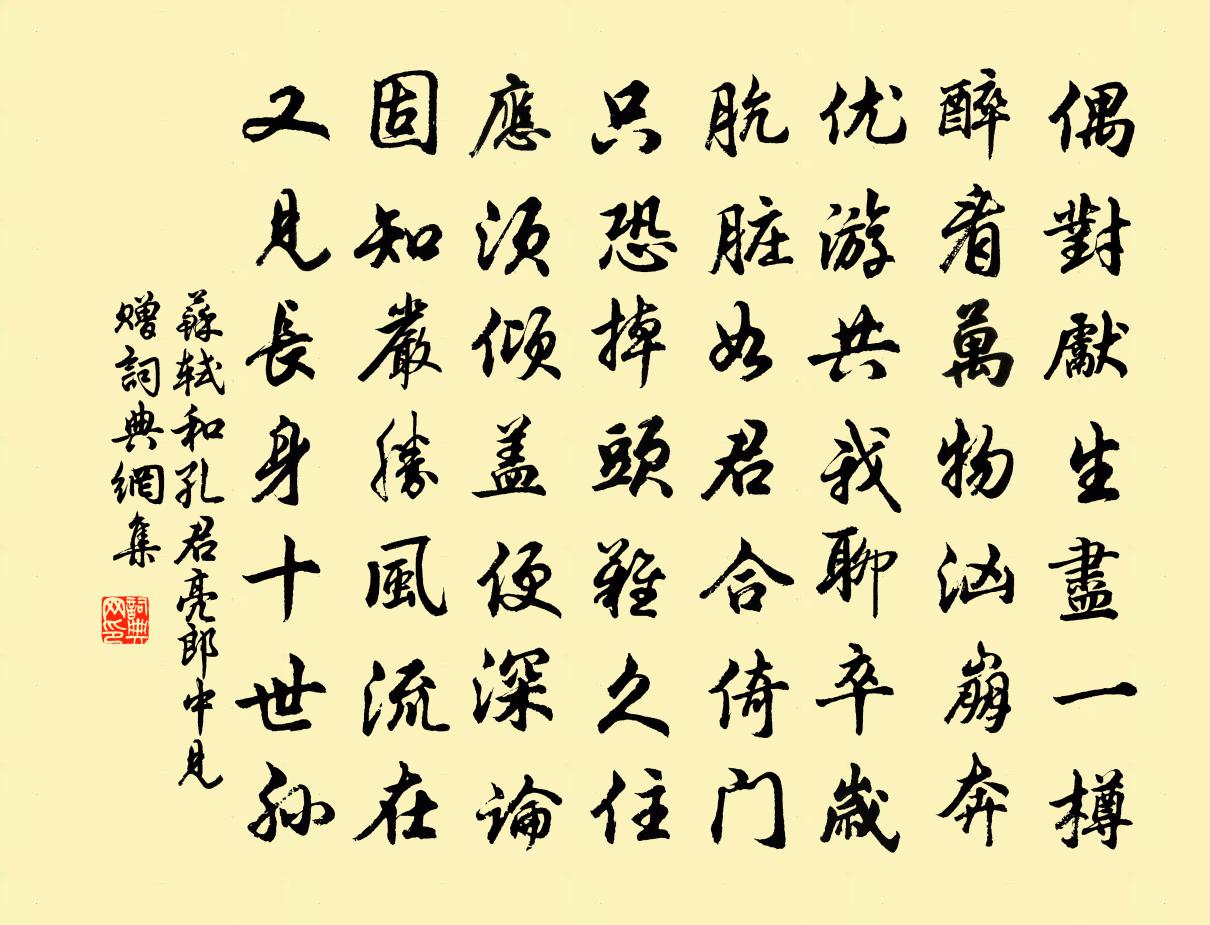 偶對獻生盡一樽
醉看萬物汹崩奔
优游共我聊卒歲
肮脏如君合倚門
只恐掉頭難久住
應須傾盖便深論
固知嚴勝風流在
又見長身十世孙
蘇軾和孔君亮郎中見
贈詞典網集
詞典
网印